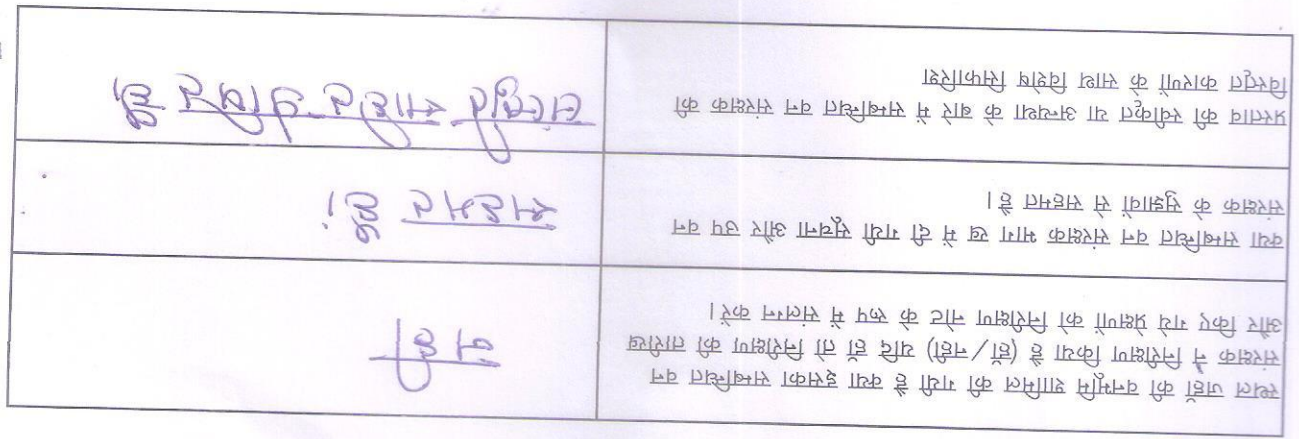 स्थल जहाँ की वनभूमि शामिल की गयी है क्या इसका सम्बन्धित वन
संरक्षक ने निरीक्षण किया है (हाँ/नहीं) यदि हाँ तो निरीक्षण की तारीख
और किए गये प्रेक्षणों को निरीक्षण नोट के रूप में संलग्न करें।
नहीं
क्या सम्बन्धित वन संरक्षक भाग ख में दी गयी सूचना और उप वन
संरक्षक के सुझावों से सहमत है।
सहमत हूँ।
प्रस्ताव की स्वीकृत या अन्यथा के बारे में सम्बन्धित वन संरक्षक की
विस्तृत कारणों के साथ विशिष सिफारिश
संस्तुति सहित प्रेषित है।